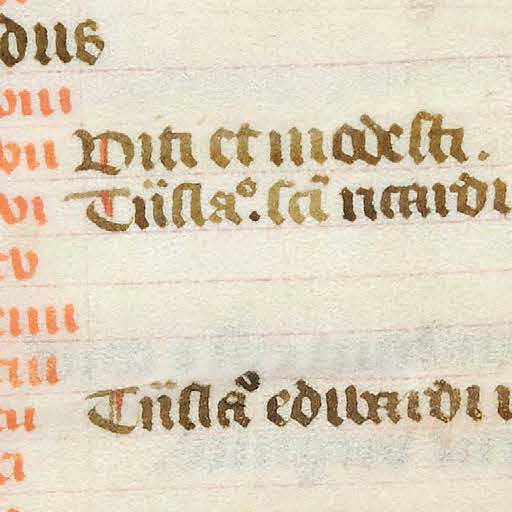 dus
viii
vii Viti et modesti.
vi Tnsla°. sci ricardi
v
iiii
iii
ii Tnsla° eduuardi